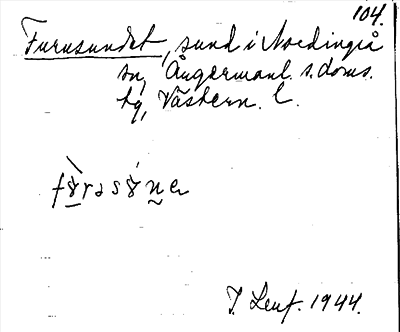 104.
Furusundet, sund i Nordingrå
sn, Ångermanl. s. doms.
hg, Västern. l.
J. Lenf. 1944.